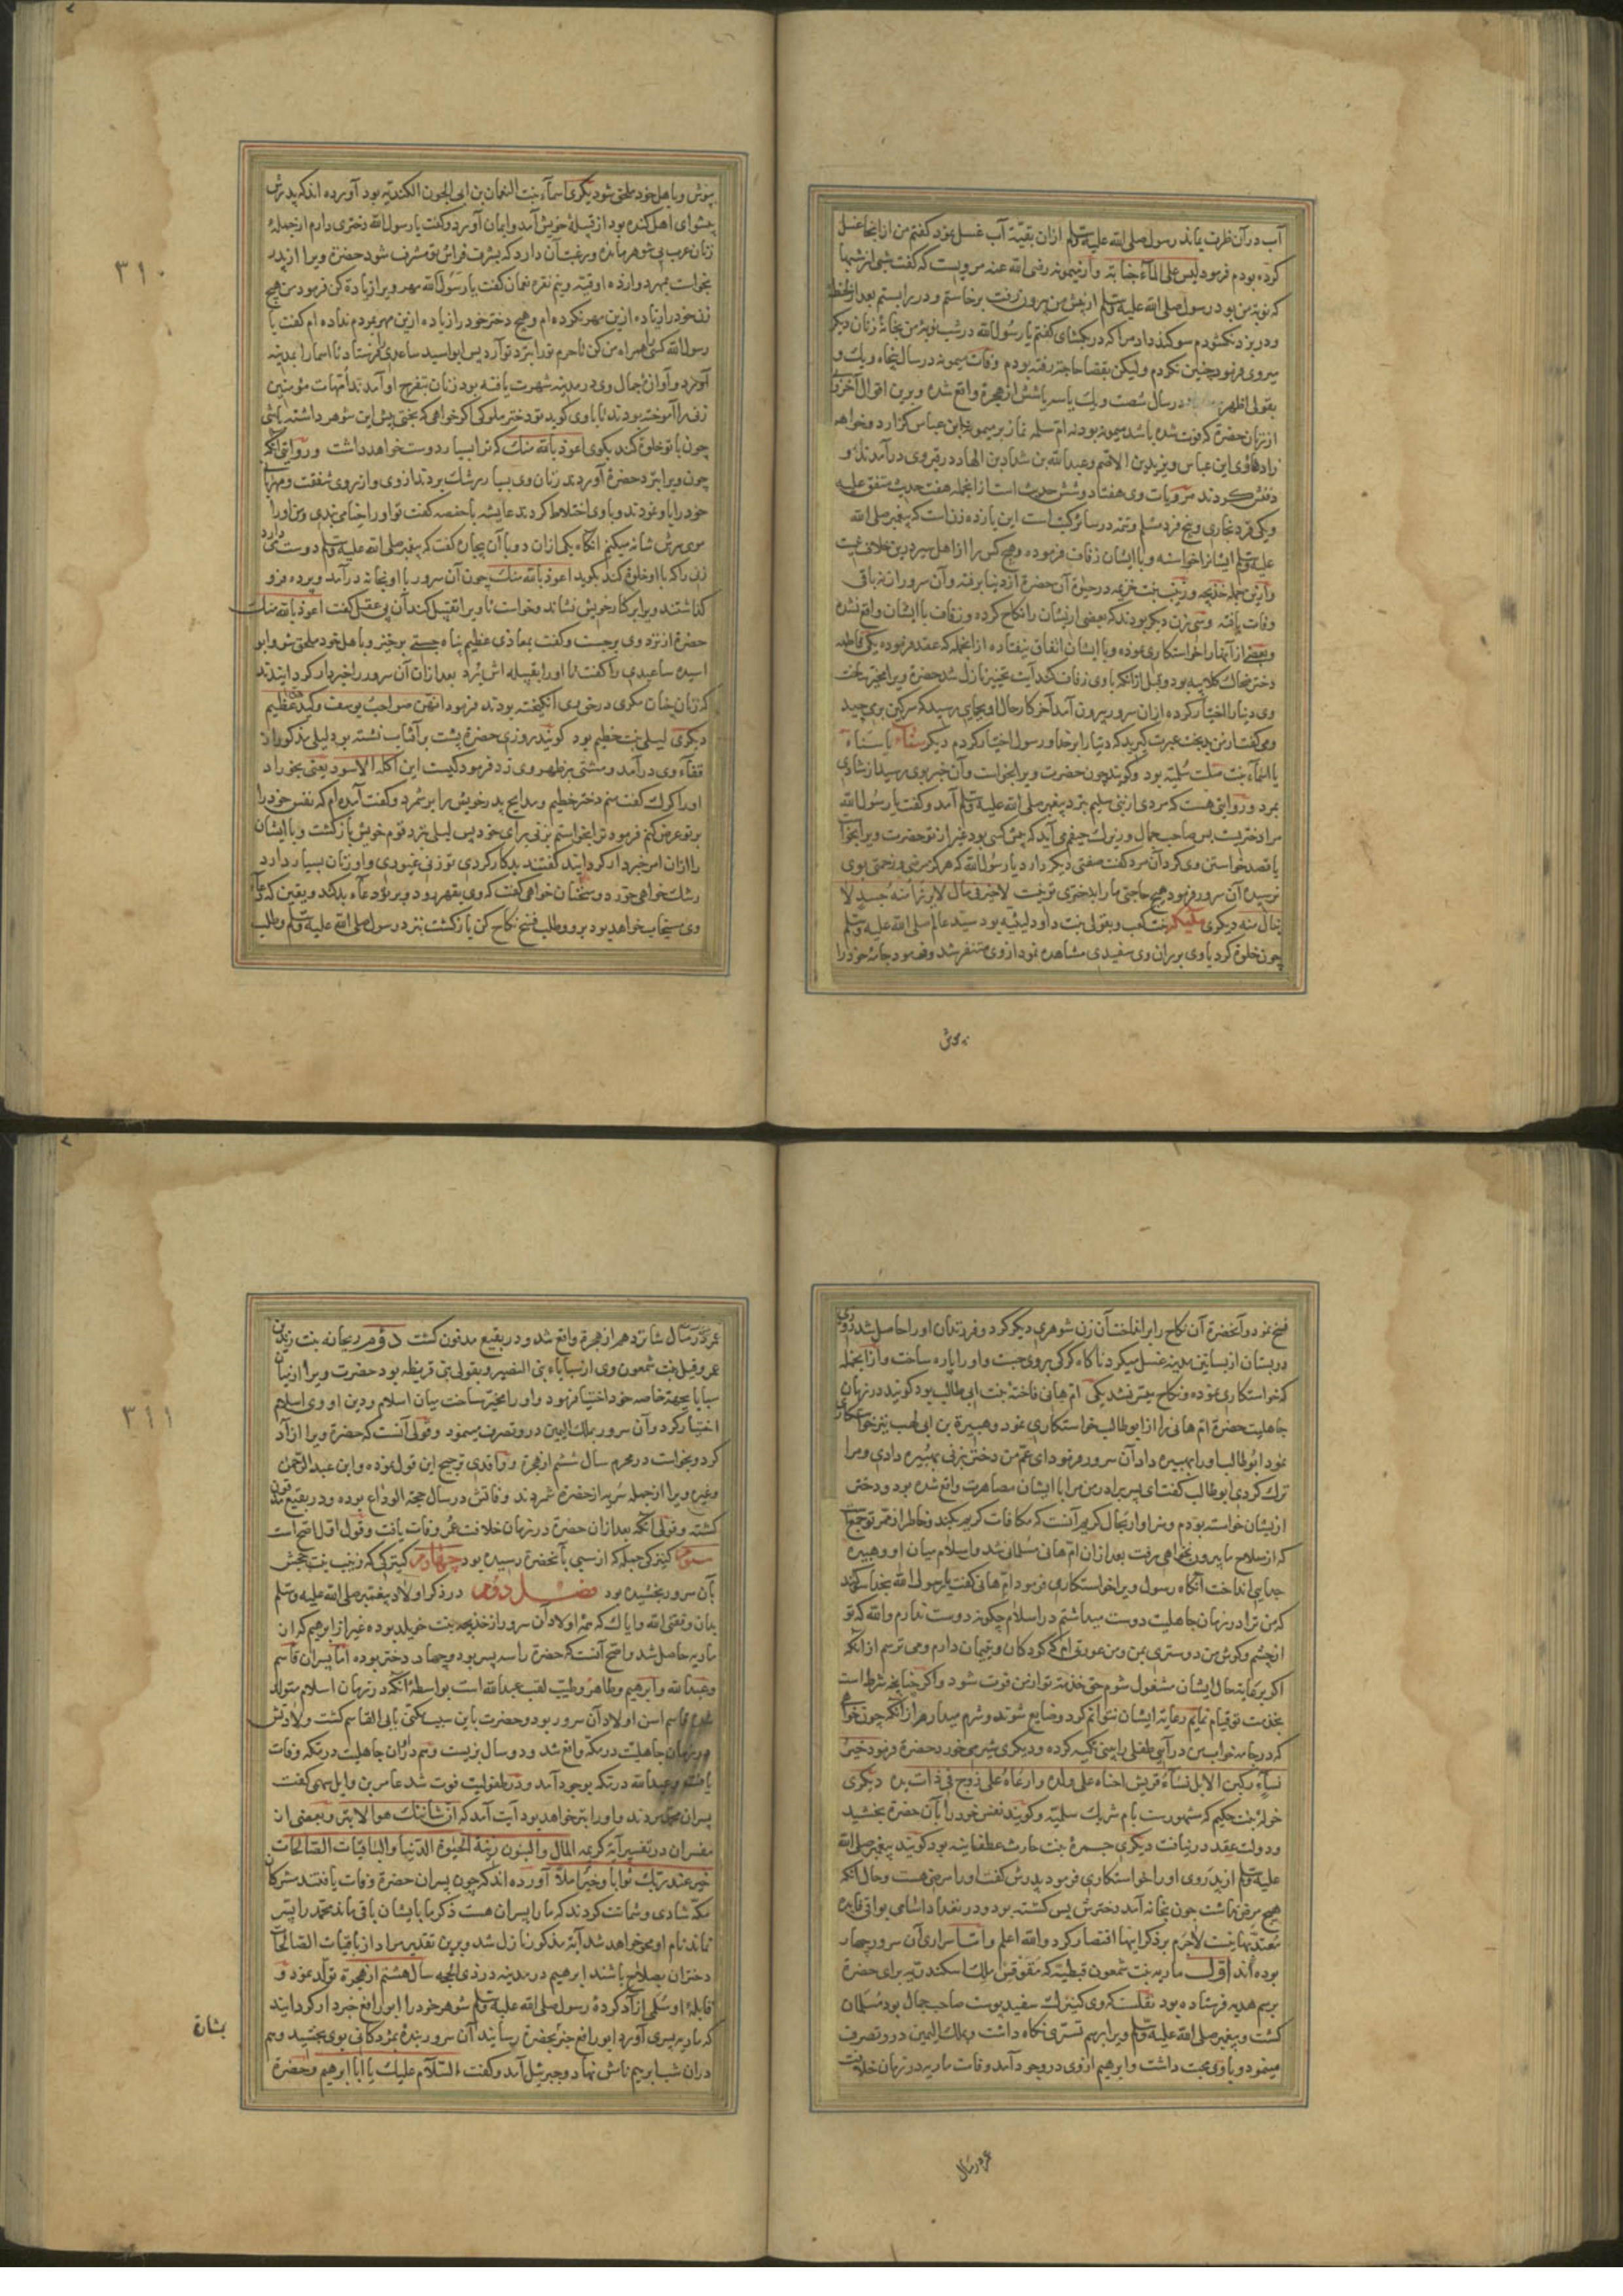 آب در آن ظرف بماند رسول صلی الله علیه وسلم ازان بقیّهٔ آب غسل نمود گفتم من از اینجا غسل
کرده بودم فرمود لیس علی المآء جنابة واز میمونه رضی الله عنه مرویست که گفت شبی از شبها
که نوبهٔ من بود رسول صلی الله علیه وسلم از پیش من بیرون رفت برخاستم و در را ببستم بعد از لحظهٔ
و در بزد نکشودم سوکند داد مرا که در بکشای گفتم یا رسول الله در شب نوبهٔ من بخانهٔ زنان دیکر
میروی فرمود چنین نکردم ولیکن بقضا حاجة رفته بودم وفات میمونه در سال پنجاه ویک و
بقولی اظهر در سال شصت ویک یا سه یا شش از هجرة واقع شده وبرین اقوال آخر
از زنان حضرة که فوت شده باشد میمونه بود نه ام سلمه نماز بر میمونه ابن عباس کزارد وخواهر
زادهاؤی ابن عباس ویزید بن الاصم وعبد الله بن شداد بن الهاد در قبر وی درآمدند و
دفنش کردند مرویات وی هفتاد وشش حدیث است ازانجمله هفت حدیث متفق علیه
ویکی فرد بخاری وپنج فرد مسلم وتتمه در سائر کتب است این یازده زن است که پیغمبر صلی الله
علیه وسلم ایشانرا خواسته وبا ایشان زفاف فرموده وهیچ کس را از اهل سیر درین خلاف نیست
وازین جمله خدیجه وزینب بنت خزیمه در حیوة آن حضرة از دنیا برفته وآن سرور از نه باقی
وفات یافته وسی زن دیکر بودند که بعضی ازیشان را نکاح کرده وزفاف با ایشان واقع نشده
وبعضی از آنها را خواستکاری نموده وبا ایشان اتفاق نیفتاده ازانجمله که عقد فرموده یکی فاطمه
دختر ضحاک کلابیه بود وقبل ازانکه با وی زفاف کند آیت تخییر نازل شد حضرة ویرا مخیّر ساخت
وی دنیا را اختیار کرده ازان سرور بیرون آمد آخر کار حال او بجایی رسید که سرکین برمی چید
ومی کفت زن بدبخت عبرت کیرید که دنیا را بر خدا ورسول اختیار کردم دیکر سناء یا سناة
یا اسمآء بنت صلت سلمیه بود وکویند چون حضرت ویرا بخواست وآن خبر بوی رسید از شادی
بمرد وروایتی هست که مردی از بنی سلیم نزد پیغمبر صلی الله علیه وسلم آمد وکفت یا رسول الله
مرا دختریست بس صاحب جمال وزیرک حیفم می آید که پیش کسی بود غیر از تو حضرت ویرا بخواست
یا قصد خواستن وی کرد آن مرد کفت صفتی دیکر دارد یا رسول الله که هرکز مرضی وزحمتی بوی
نرسیده آن سرور فرمود هیچ حاجتی ما را بدختری تو نیست لا خیر فی مال لا یرزأ منه وجسد لا
ینال منه دیکری ملیکه بنت کعب وبقولی بنت داود لیثیه بود سید عالم صلی الله علیه وسلم
چون خلوة کرد با وی بر ران وی سفیدی مشاهده نمود از وی متنفر شد وفرمود جامهٔ خود را
بپوش
٣١٠
بپوش وباهل خود ملحق شو دیکری اسمآء بنت النعمان بن ابی الجون الکندیه بود آورده اند که پدرش
پیشوای اهل کنده بود از قبیلهٔ خویش آمد وایمان آورد وکفت یا رسول الله دختری دارم از جملهٔ
زنان عرب بی شوهر مانده ورغبت آن دارد که بشرف فراش تو مشرف شود حضرة ویرا از پدر
بخواست بمهر دوازده اوقیه ونیم نقره نعمان کفت یا رسول الله مهر ویرا زیادة کن فرمود من هیچ
زن خود را زیاده ازین مهر نکرده ام وهیچ دختر خود را زیاده ازین مهر بمردم نداده ام کفت یا
رسول الله کسی همراه من کن تا حرم تو را نزد تو آرد پس ابو اسید ساعدی را فرستاد تا اسما را بمدینه
آورد وآوازهٔ جمال وی در مدینه شهرت یافته بود زنان بتفرج او آمدند امهات مؤمنین
زنی را آموخته بودند تا با وی کوید تو دختر ملوکی اکر خواهی که بختی پیش این شوهر داشته باشی
چون با تو خلوة کند بکوی اعوذ بالله منک که ترا بسیار دوست خواهد داشت وروایتی آنکه
چون ویرا نزد حضرة آوردند زنان وی بسیار رشک بردند از وی واز روی شفقت ومهربانی
خود را باو نمودند وباوی اختلاط کردند عایشه با حفصه کفت تو اورا حنا می بندی ومن اورا
موی سرش شانه میکنم آنکاه یکی ازان دو با آن بیچاره کفت که پیغمبر صلی الله علیه وسلم دوست می دارد
زنی را که با او خلوة کند بکوید اعوذ بالله منک چون آن سرور با او بخانه درآمد وپرده فرو
کذاشتند ویرا بر کنار خویش نشاند وخواست تا ویرا تقبیل کند آن بی عقل کفت اعوذ بالله منک
حضرة از نزد وی برجست وکفت بمعاذی عظیم پناه جستی برخیز وباهل خود ملحق شو وابو
اسید ساعدی را کفت تا اورا بقبیله اش برد بعد ازان آن سرور را خبردار کردانیدند
که زنان چنان مکری در حق وی انکیخته بودند فرمود انهن صواحب یوسف وکیدهن عظیم
دیکری لیلی بنت خطیم بود کویند روزی حضرة پشت بر آفتاب نشسته بود لیلی مذکور از
قفآء وی درآمد ومشتی بر ظهر وی زد فرمود کیست این اکله الاسود یعنی بخوراد
اورا کرک کفت منم دختر خطیم ومدایح پدر خویش را برشمرد وکفت آمده ام که نفس خود را
بر تو عرض کنم فرمود ترا بخواستم بزنی برای خود پس لیلی نزد قوم خویش بازکشت وبا ایشان
را ازان امر خبردار کردانید کفتند بد کار کردی تو زنی غیوری واو زنان بسیار دارد
رشک خواهی خورد وسخنان خواهی کفت که وی بقهر رود وبر تو دعآء بد کند ویقین که دعآء
وی مستجاب خواهد بود برو وطلب فسخ نکاح کن بازکشت نزد رسول صلی الله علیه وسلم وطلب
فسخ نمود وآنحضرة آن نکاح را برانداخت آن زن شوهری دیکر کرد وفرزندان اورا حاصل شد روزی
در بستان از بساتین مدینه غسل میکرد ناکاه کرکی بر وی جست واورا پاره ساخت وازانجمله
که خواستکاری نموده ونکاح میسر نشد یکی ام هانی فاخته بنت ابی طالب بود کویند در زمان
جاهلیت حضرة ام هانی را از ابو طالب خواستکاری نمود وهبیره بن ابی لهب نیز خواستکاری
نمود ابو طالب اورا بهبیره داد آن سرور فرمود ای عم من دختر بزنی بهبیره دادی ومرا
ترک کردی ابو طالب کفت ای پسر برادر من مرا با ایشان مصاهرت واقع شده بود ودختر
ازیشان خواسته بودم وسزاوار بحال کریم آنست که مکافات کریم بکند وخاطر از ممر تو جمع است
که از صلاح ما بیرون نخواهی رفت بعد ازان ام هانی مسلمانی شد واسلام میان او وهبیره
جدایی انداخت آنکاه رسول ویرا خواستکاری فرمود ام هانی کفت یا رسول الله بخدا سوکند
که من ترا در زمان جاهلیت دوست میداشتم در اسلام چکونه دوست ندارم والله که تو
از چشم وکوش من دوستری بمن ومن عورتی ام که کودکان ویتیمان دارم ومی ترسم ازانکه
اکر برعایة حال ایشان مشغول شوم حق خدمة تو از من فوت شود واکر چنانچه شرط است
بخدمت تو قیام نمایم رعایة ایشان نتوانم کرد وضایع شوند وشرم میدارم ازانکه چون خواهی
که در جامه خواب من درآیی طفلی را بینی تکیه کرده ودیکری شیر می خورد حضرة فرمود خیر
نسآء رکبن الابل نسآء قریش احناه علی ولده وارعاه علی زوج فی ذات یده دیکری
خوله بنت حکیم که مشهورست بام شریک سلمیه وکویند نفس خود را بآن حضرة بخشید
ودولت عقد در نیافت دیکری جمرة بنت حارث غطفانیه بود کویند پیغمبر صلی الله
علیه وسلم از پدر وی اورا خواستکاری فرمود پدرش کفت اورا مرضی هست وحال آنکه
هیچ مرض نداشت چون بخانه آمد دخترش پیس کشته بود ودر تعداد اسامی بواقی فایده
معتدبها نیست لاجرم بر ذکر اینها اقتصار کرد والله اعلم واما سراری آن سرور چهار
بوده اند اول ماریه بنت شمعون قبطیه که مقوقس ملک اسکندریه برای حضرة
برسم هدیه فرستاده بود نقلست که وی کنیزک سفید پوست صاحب جمال بود مسلمان
کشت وپیغمبر صلی الله علیه وسلم ویرا برسم تسری نکاه داشت وبملک الیمین درو تصرف
مینمود وباوی محبت داشت وابراهیم از وی در وجود آمد وفات ماریه در زمان خلافت
عمر در سال
٣١١
عمر در سال شانزدهم از هجرة واقع شد ودر بقیع مدفون کشت دوم ریحانه بنت زید بن
عمرو وقیل بنت شمعون وی از سبایاء بنی النضیر وبقولی بنی قریظه بود حضرت ویرا از میان
سبایا بجهة خاصه خود اختیار فرمود واورا مخیّر ساخت میان اسلام ودین او وی اسلام
اختیار کرد وآن سرور بملک الیمین درو تصرف مینمود وقولی آنست که حضرة ویرا آزاد
کرد وبخواست در محرم سال ششم از هجرة وواقدی ترجیح این قول نموده وابن عبد الرحمن
وغیره ویرا از جمله سریه از حضرة شمردند وفاتش در سال حجة الوداع بوده ودر بقیع مدفون
کشته وقولی آنکه بعد ازان حضرة در زمان خلافت عمر وفات یافت وقول اول اصح است
سوم کنیزکی جمیله که از سبی بآنحضرة رسیده بود چهارم کنیزکی که زینب بنت جحش
بآن سرور بخشیده بود فصل دوم در ذکر اولاد پیغمبر صلی الله علیه وسلم
بدان وفقنی الله وایاک که همه اولاد آن سرور از خدیجه بنت خویلد بوده غیر از ابراهیم که از
ماریه حاصل شد واصح آنست که حضرة را سه پسر بود وچهار دختر بوده اما پسران قاسم
وعبد الله وابراهیم وطاهر وطیب لقب عبد الله است بواسطهٔ آنکه در زمان اسلام متولد
شده قاسم اسن اولاد آن سرور بود وحضرت باین سبب مکنی بابی القاسم کشت ولادتش
در زمان جاهلیت در مکه واقع شد ودو سال زیست وهم دران جاهلیت در مکه وفات
یافته وعبد الله در مکه بوجود آمد ودر طفولیت فوت شد عامر بن وایل سهمی کفت
پسران محمد مردند واورا ابتر خواهد بود آیت آمد که ان شانئک هو الابتر وبعضی از
مفسران در تفسیر آیهٔ کریمه المال والبنون زینة الحیوة الدنیا والباقیات الصالحات
خیر عند ربک ثوابا وخیر املا آورده اند که چون پسران حضرة وفات یافتند مشرکان
مکه شادی وشماتت کردند که ما را پسران هست ذکر ما بایشان باقی ماند محمد را پسر
نماند نام او محو خواهد شد آیهٔ مذکور نازل شد وبرین تقدیر مراد از باقیات الصالحات
دختران بصلاح باشند ابراهیم در مدینه در ذی الحجه سال هشتم از هجرة تولد نمود و
قابلهٔ او سلمی آزاد کردهٔ رسول صلی الله علیه وسلم شوهر خود را ابو رافع خبردار کردانید
که ماریه پسری آورد ابو رافع خبر بحضرة رسانید آن سرور بندهٔ بمژدکانی بوی بخشید وهم
دران شب ابراهیم نامش نهاد وجبرئیل آمد وکفت السلام علیک یا ابا ابراهیم وحضرة
بشارة